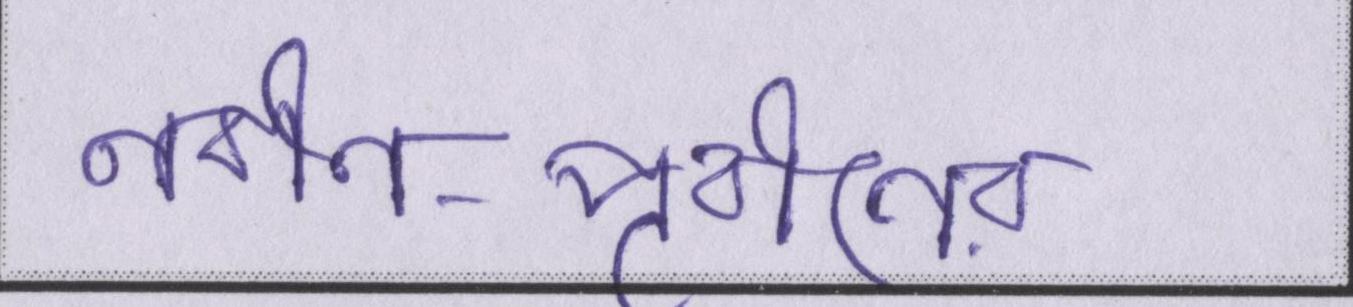 নবীন-প্রবীনের